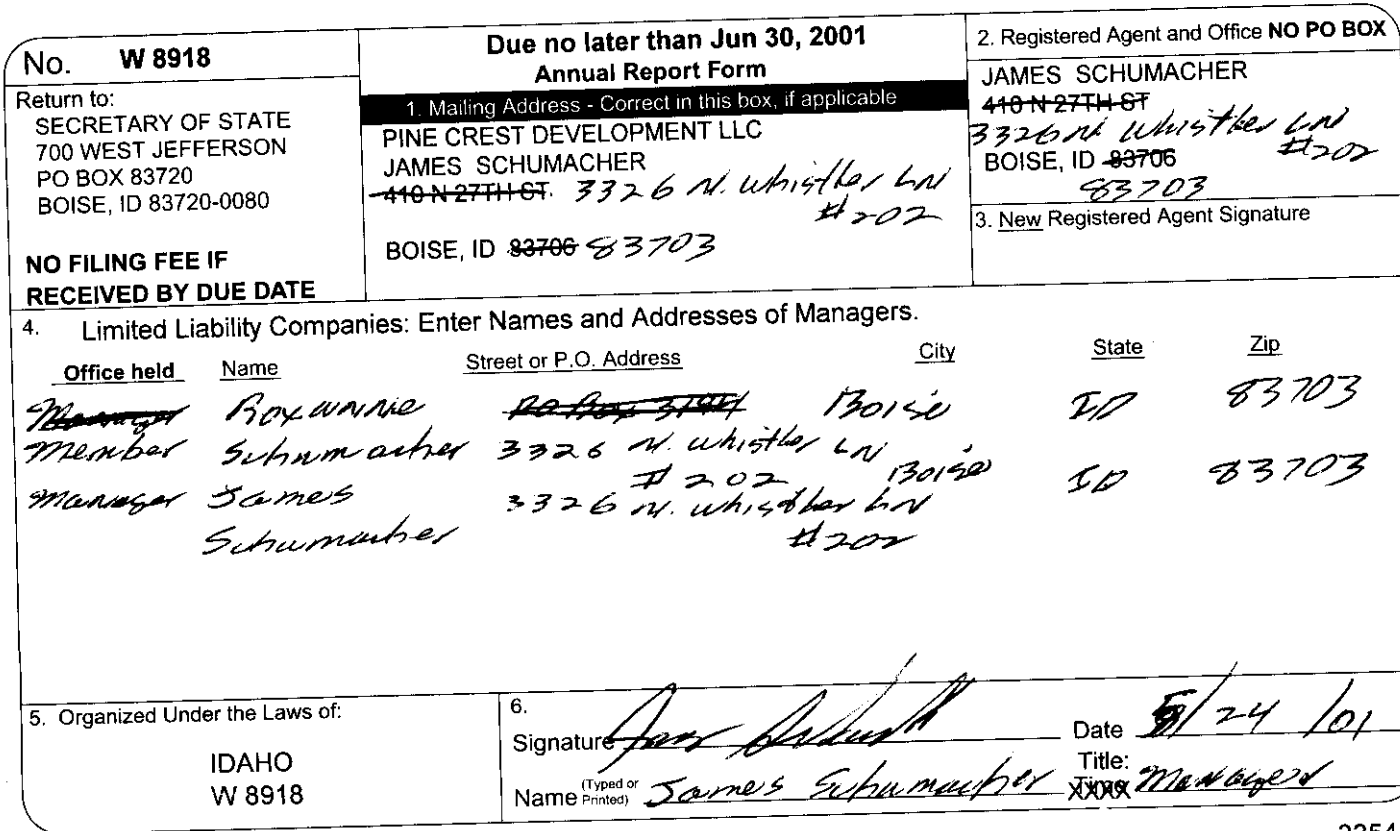 No. W 8918
Return to:
SECRETARY OF STATE
700 WEST JEFFERSON
PO BOX 83720
BOISE, ID 83720-0080
NO FILING FEE IF
RECEIVED BY DUE DATE
Due no later than Jun 30, 2001
Annual Report Form
1. Mailing Address - Correct in this box, if applicable
PINE CREST DEVELOPMENT LLC
JAMES SCHUMACHER
410 N 27TH ST. 3326 N. Whistler LN
#202
BOISE, ID 83706 83703
2. Registered Agent and Office NO PO BOX
JAMES SCHUMACHER
410 N 27TH ST
3326 N Whistler LN
#202
BOISE, ID 83706
83703
3. New Registered Agent Signature
4. Limited Liability Companies: Enter Names and Addresses of Managers.
Office held Name Street or P.O. Address City State Zip
Manager Roxannie PO Box Boise ID 83703
Member Schumacher 3326 N. Whistler LN
#202 Boise ID 83703
Manager James 3326 N. Whistler LN
Schumacher #202
5. Organized Under the Laws of:
IDAHO
W 8918
6.
Signature Date 5/24/01
Name (Typed or Printed) James Schumacher Title: Manager